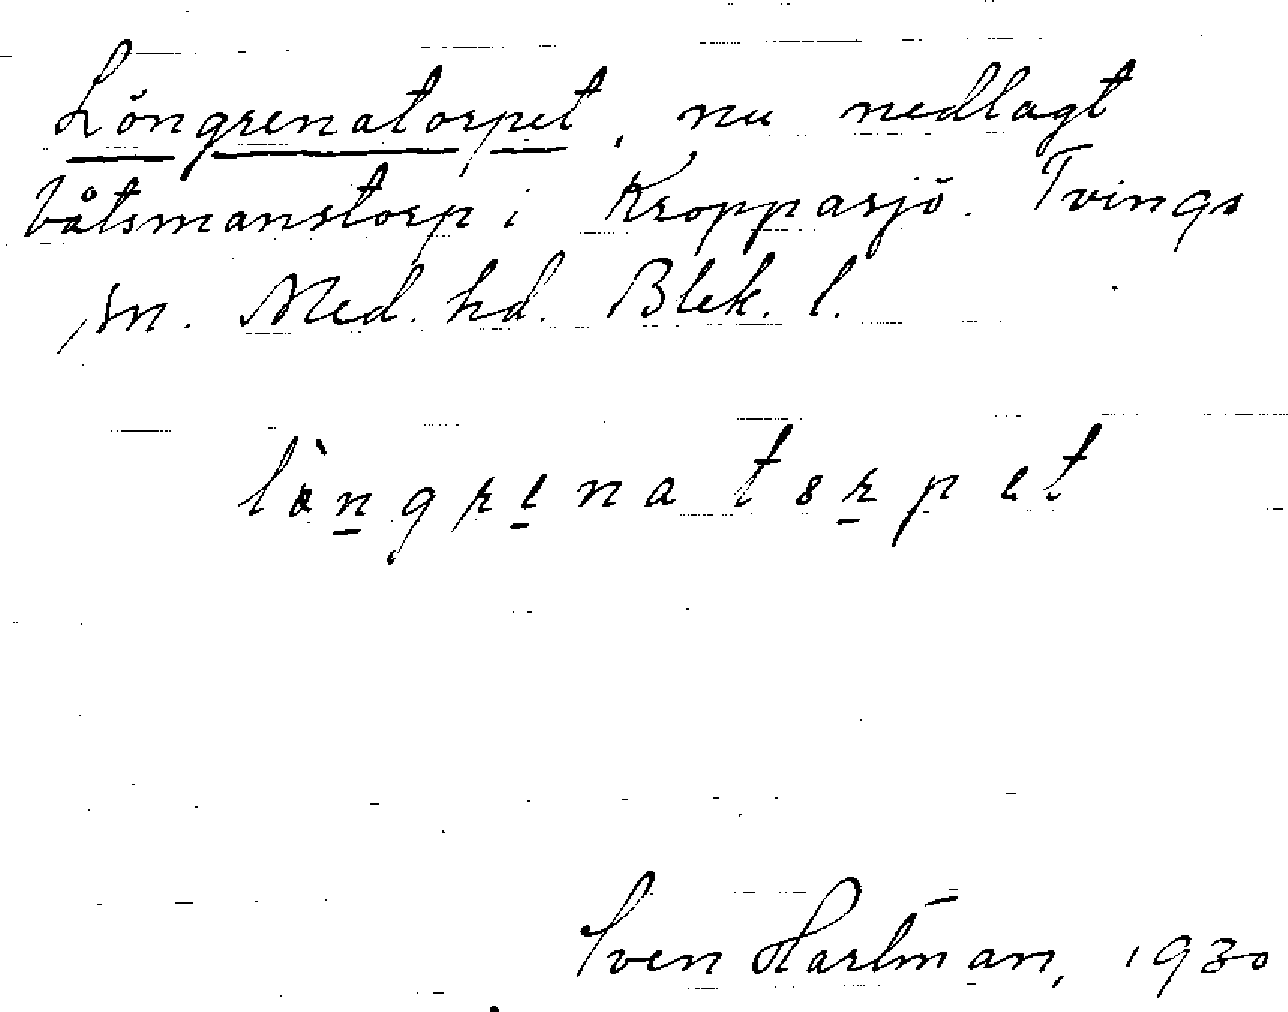 Löngrenatorpet, nu nedlagt
båtsmanstorp i Kroppasjö. Tvings
sn. Med. hd. Blek. l.
Sven Hartman, 1930